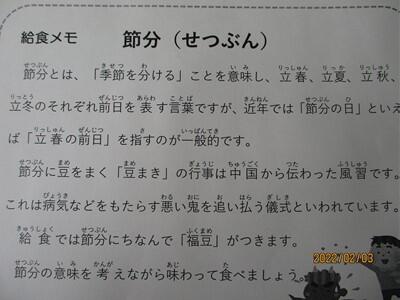 給食メモ 節分（せつぶん）
節分とは、「季節を分ける」ことを意味し、立春、立夏、立秋、
立冬のそれぞれ前日を表す言葉ですが、近年では「節分の日」といえ
ば「立春の前日」を指すのが一般的です。
節分に豆をまく「豆まき」の行事は中国から伝わった風習です。
これは病気などをもたらす悪い鬼を追い払う儀式といわれています。
給食では節分にちなんで「福豆」がつきます。
節分の意味を考えながら味わって食べましょう。
2022/02/03